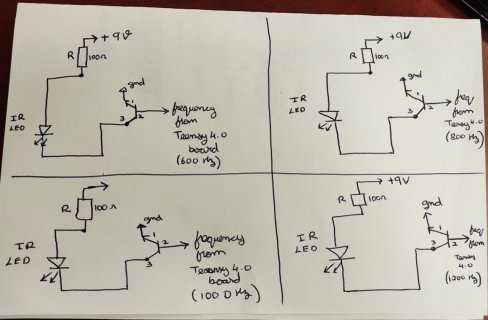 +9V
R 100Ω
gnd
1
2
3
IR
LED
frequency
from
Teensy 4.0
board
(600 Hz)
+9V
R 100Ω
gnd
1
2
3
IR
LED
freq
from
Teensy 4.0
(800 Hz)
R 100Ω
gnd
1
2
3
IR
LED
frequency
from
Teensy 4.0
board
(1000 Hz)
+9V
R 100Ω
gnd
1
2
3
IR
LED
freq
from
Teensy
4.0
(1200 Hz)